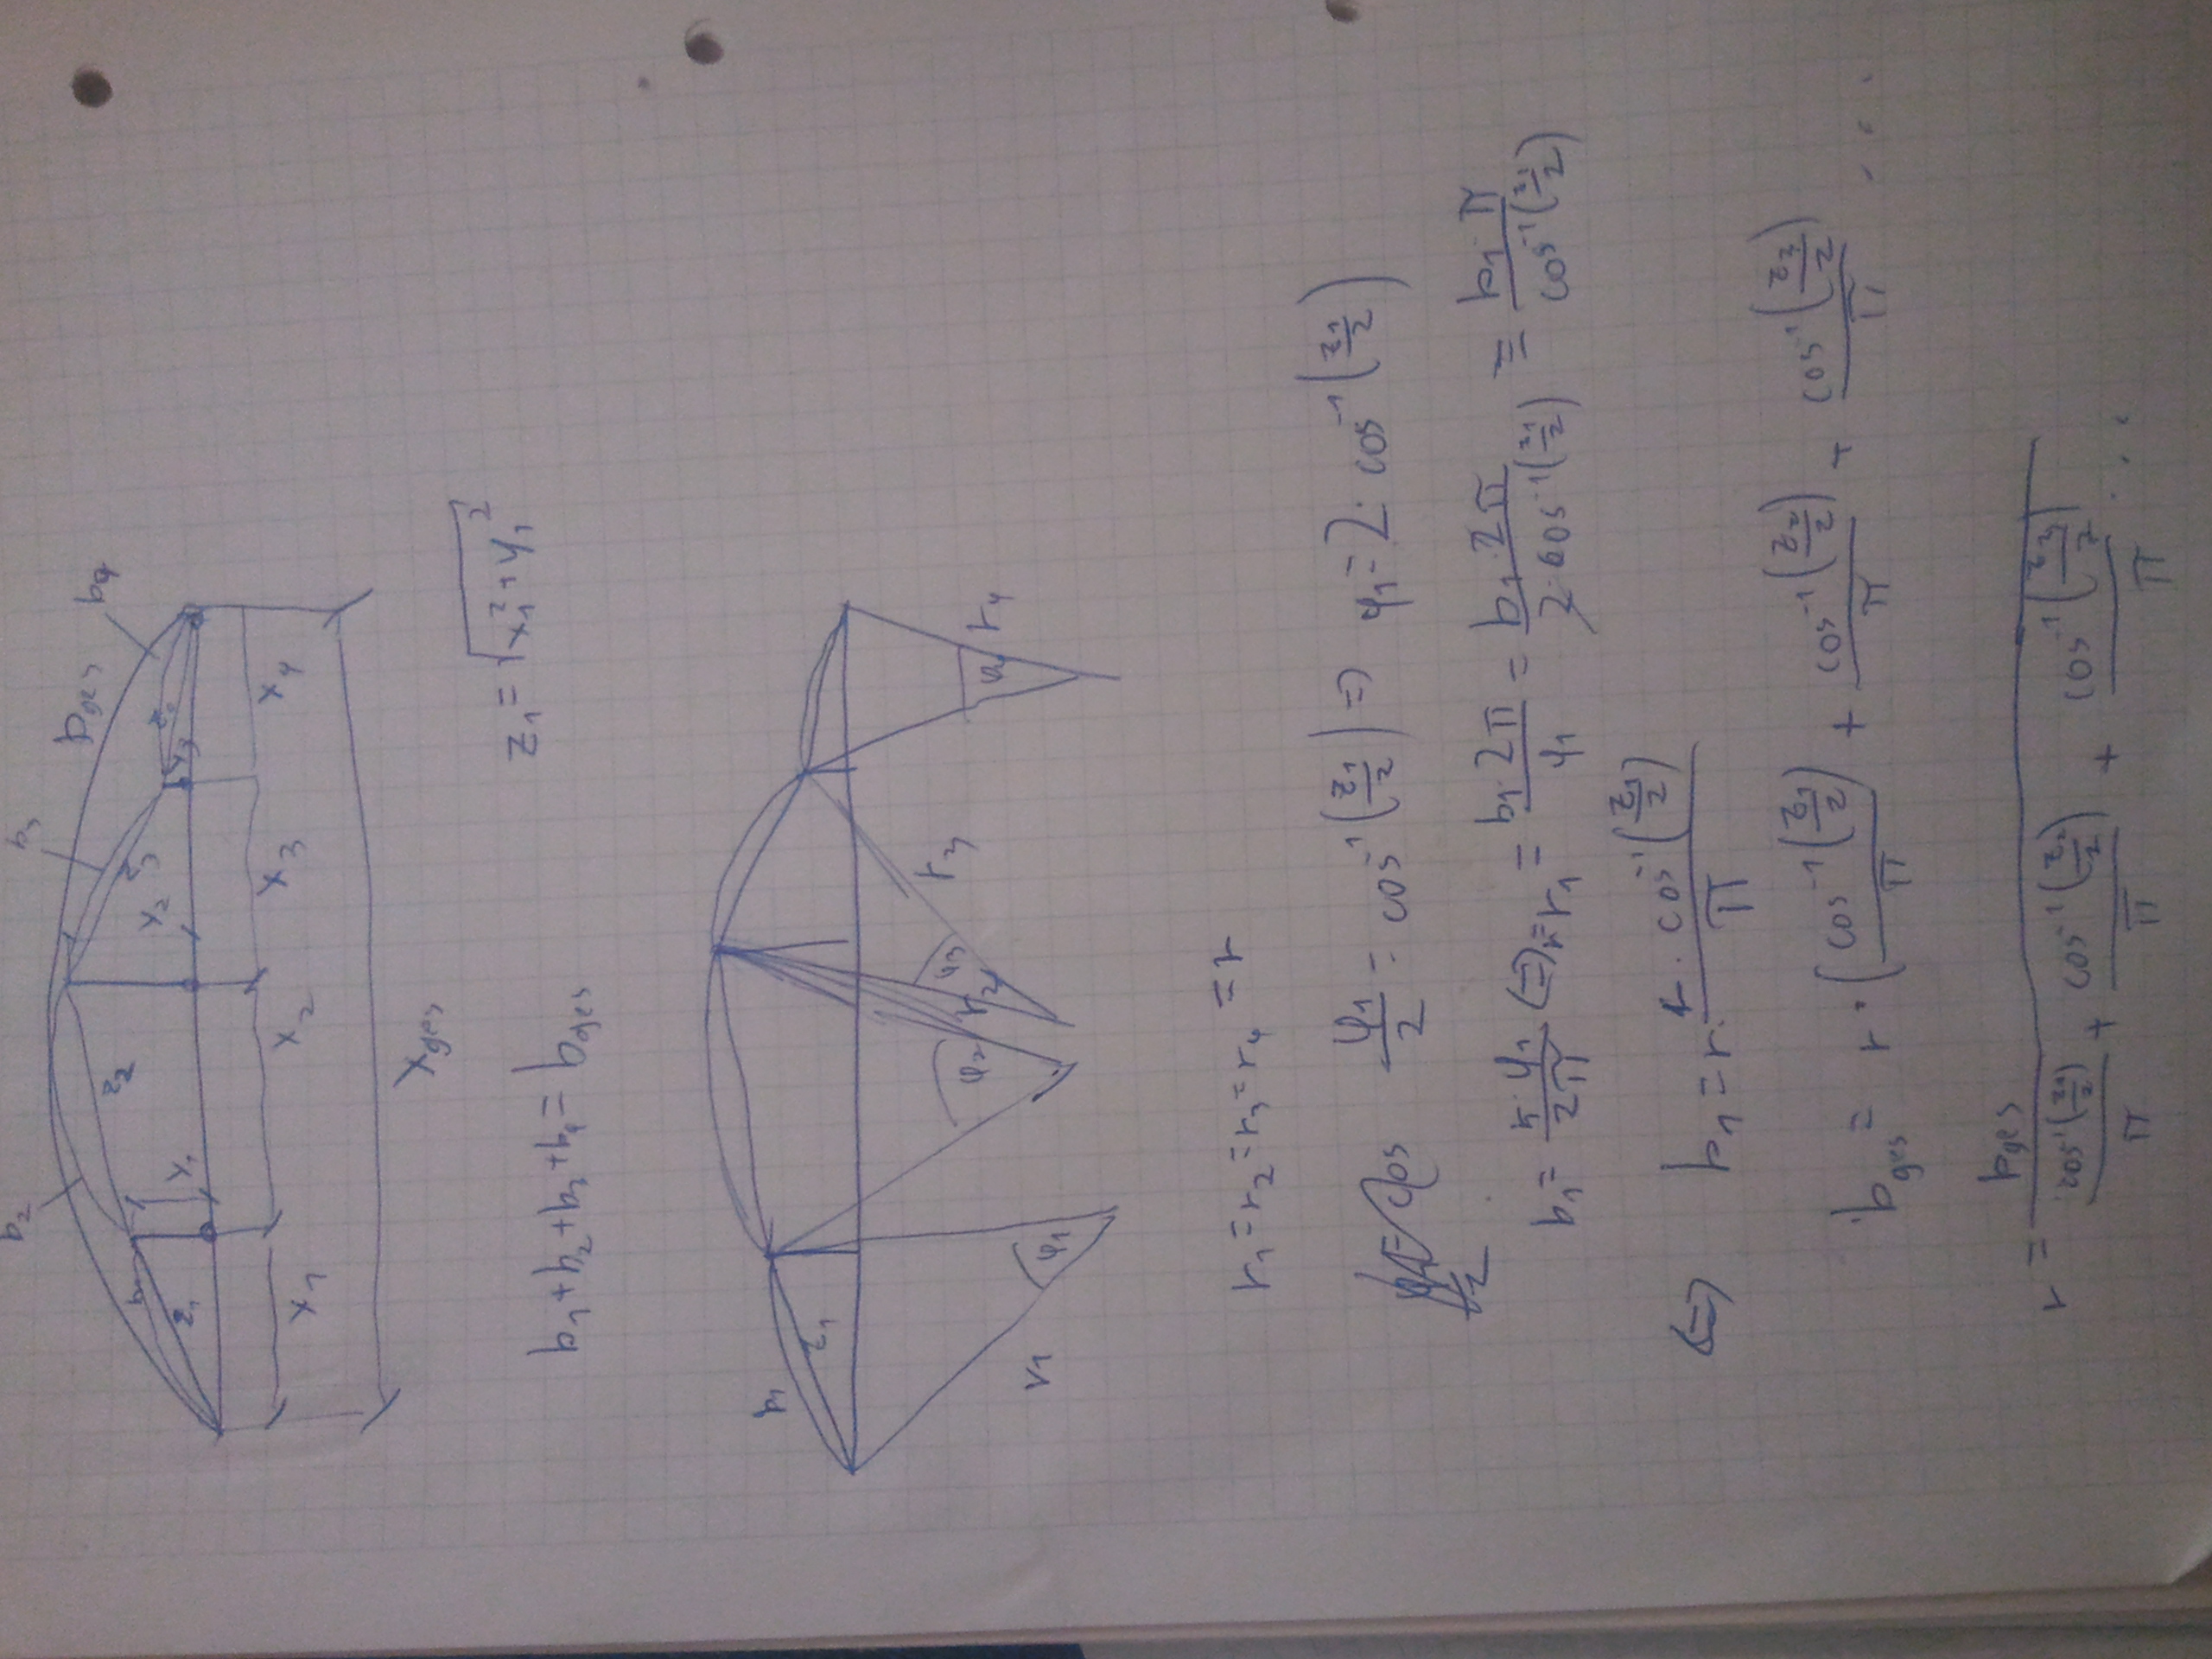 b₂ b₃
b_ges b₄
b₁ z₂ z₃
z₁ y₁ y₂ y₃
x₁ x₂ x₃ x₄
x_ges
z₁ = √(x₁² + y₁²)
b₁ + b₂ + b₃ + b₄ = b_ges
b₁
z₁
φ₂ r₂ φ₃ r₃
r₁ φ₁ φ₄ r₄
r₁ = r₂ = r₃ = r₄ = r
φ₁/2 = cos⁻¹(z₁/2) ⇒ φ₁ = 2 · cos⁻¹(z₁/2)
b₁ = r · φ₁/2π ⇔ r = r₁ = b₁ · 2π/φ₁ = b₁ · 2π/2 · cos⁻¹(z₁/2) = b₁ · π/cos⁻¹(z₁/2)
⇔ b₁ = r · cos⁻¹(z₁/2)/π
b_ges = r · (cos⁻¹(z₁/2)/π + cos⁻¹(z₂/2)/π + cos⁻¹(z₃/2)/π ...
r = b_ges/(cos⁻¹(z₁/2)/π + cos⁻¹(z₂/2)/π + cos⁻¹(z₃/2)/π ...